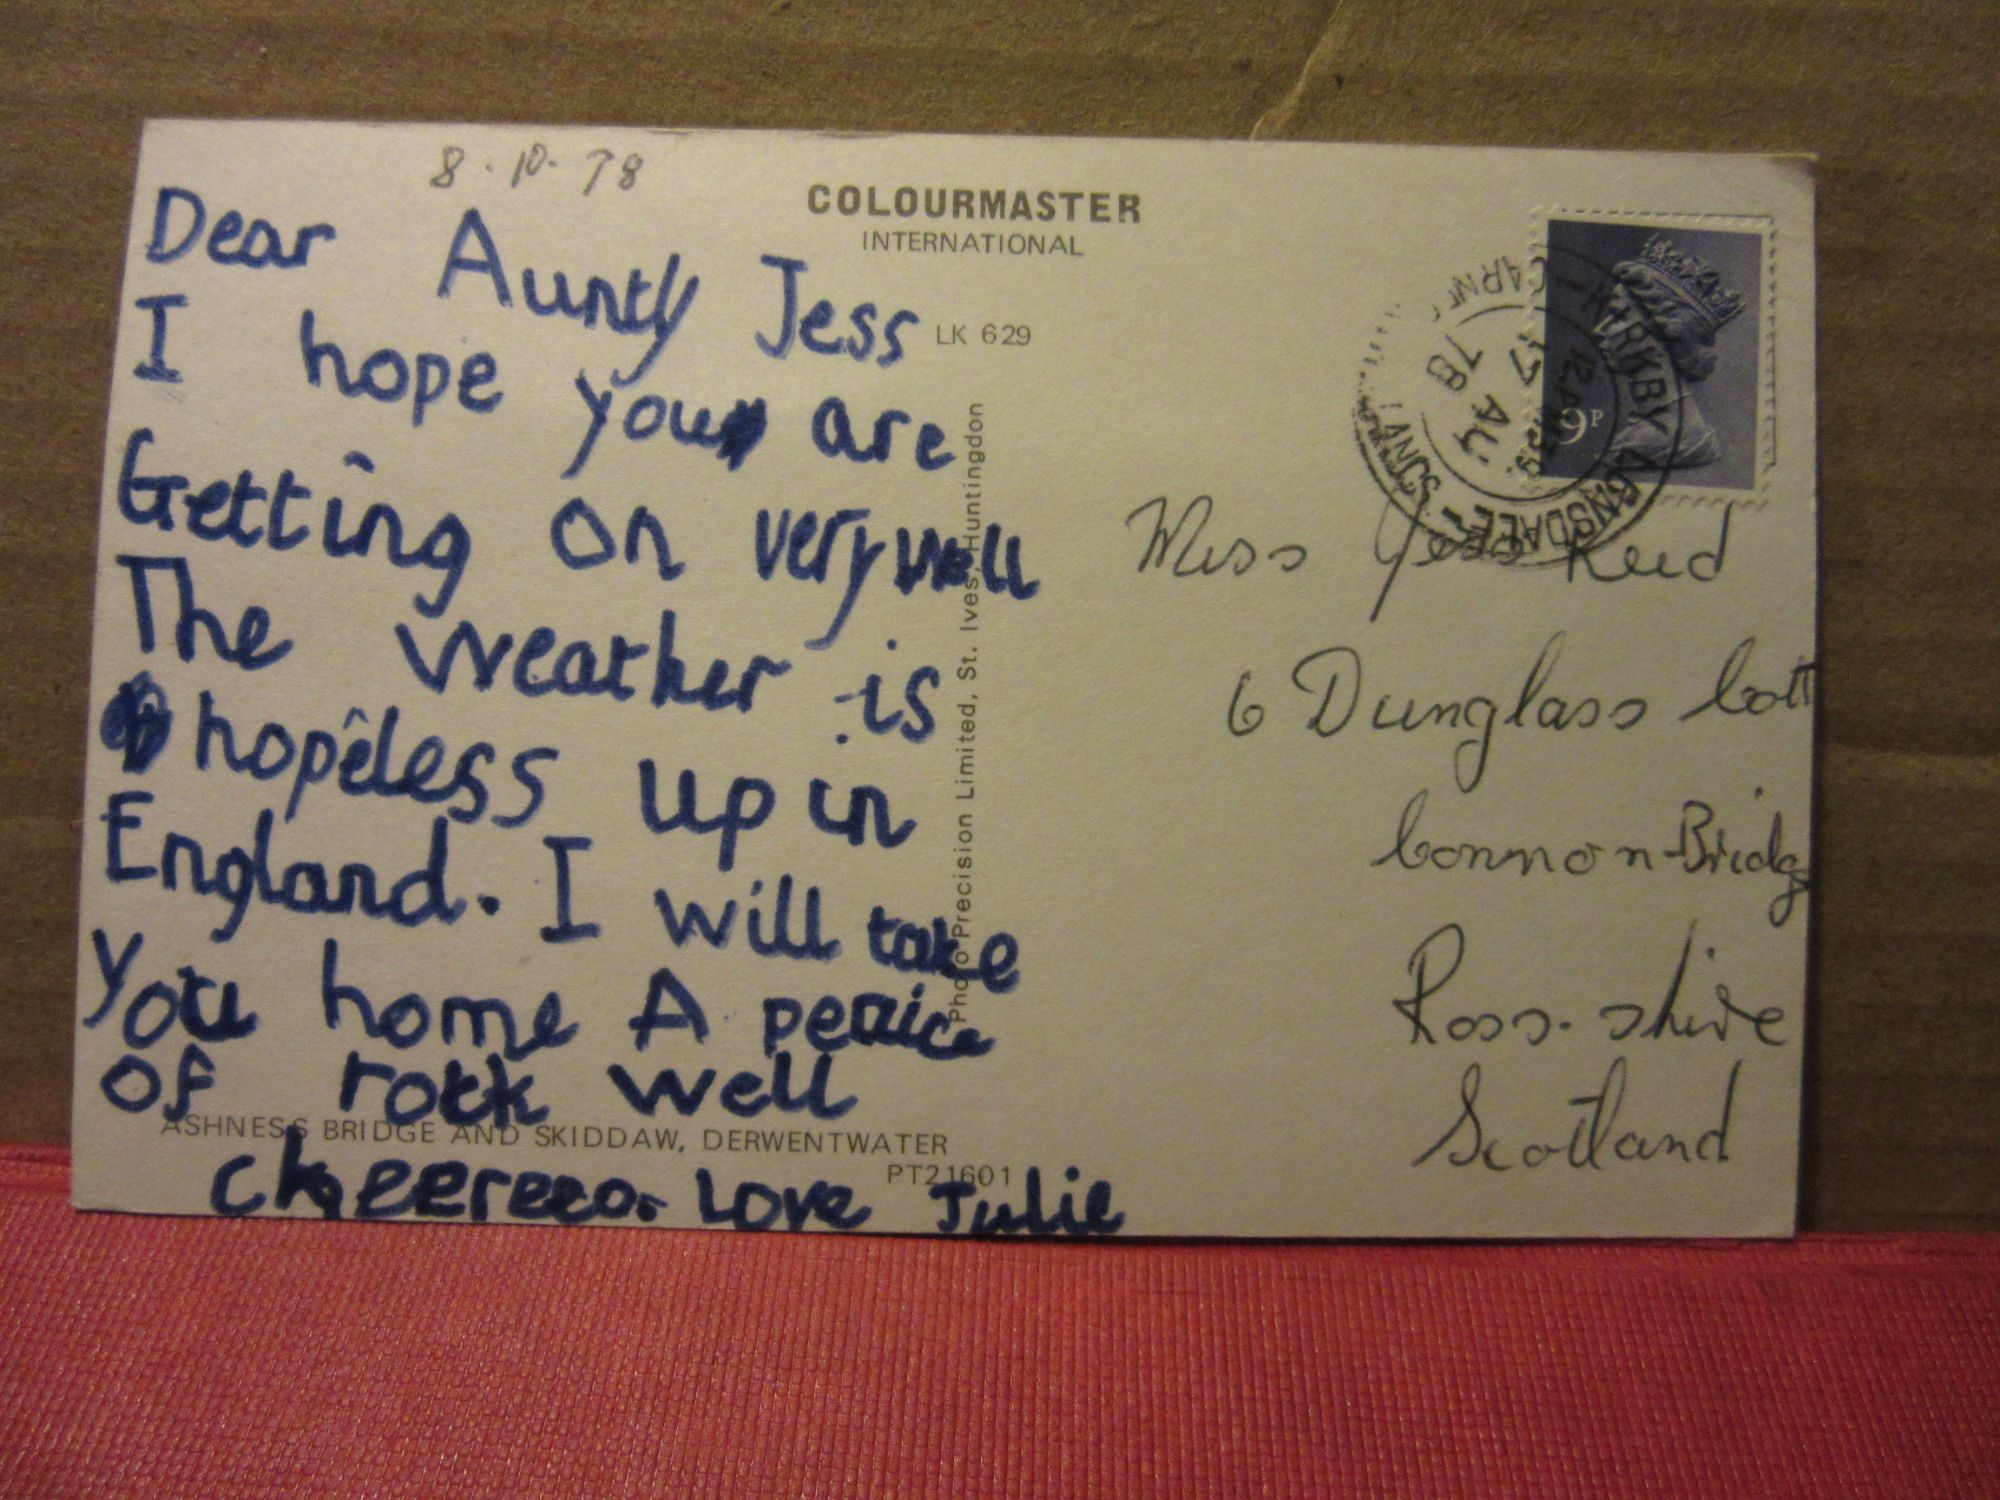 8.10.78
Dear Aunty Jess
I hope you are
Getting on very well
The weather is
hopeless up in
England. I will take
you home A peice
of rock well
cheereeo. Love Julie
COLOURMASTER
INTERNATIONAL
LK 629
Photo Precision Limited, St. Ives, Huntingdon
ASHNESS BRIDGE AND SKIDDAW, DERWENTWATER
PT21601
9P
KIRKBY LONSDALE
12 PM
17 AU
78
Miss Jess Reid
6 Dunglass Cott
Connon-Bridg
Ross-shire
Scotland